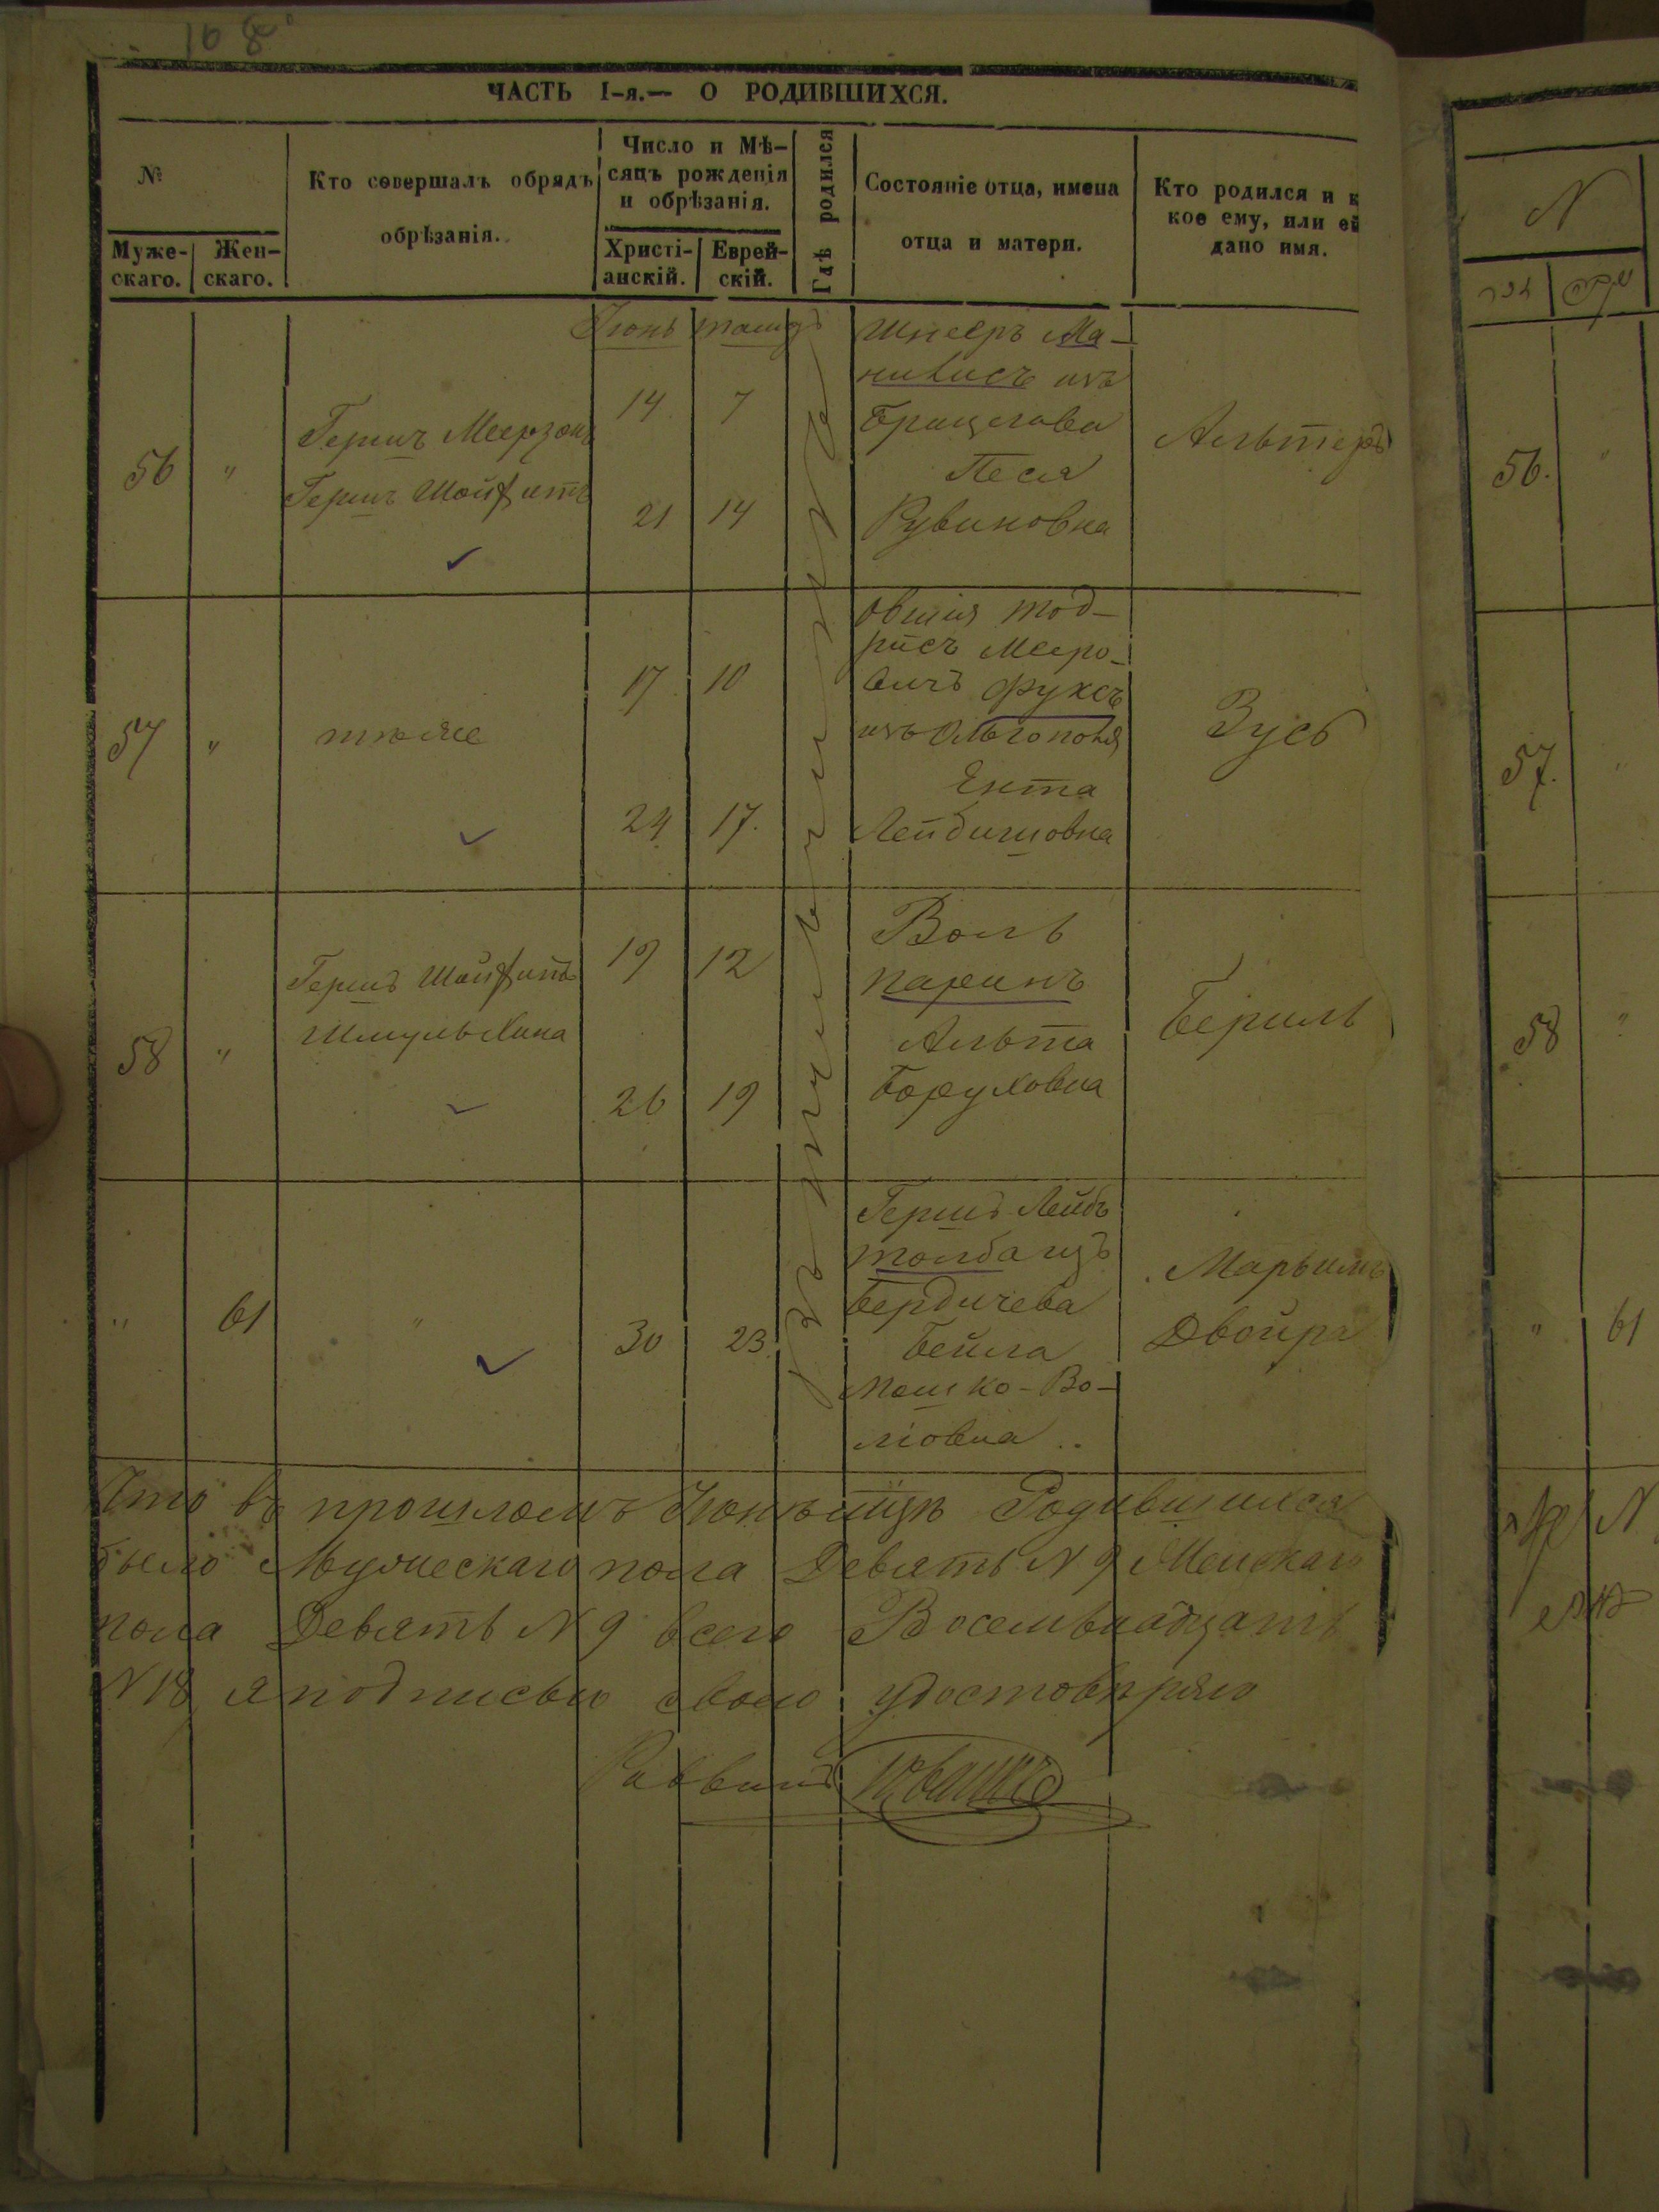 168
ЧАСТЬ I-я.— О РОДИВШИХСЯ.
№
Муже-
скаго.
Жен-
скаго.
Кто совершалъ обрядъ
обрѣзанія.
Число и Мѣ-
сяцъ рожденія
и обрѣзанія.
Христі-
анскій.
Еврей-
скій.
Гдѣ родился
Состояніе отца, имена
отца и матери.
Кто родился и к
кое ему, или ей
дано имя.
Іюнь
56 "
Гершъ Меерзонъ
Гершъ Шойфитъ
14 7
21 14
Шнееръ Ма-
из
Брацлава
Песя
Рувиновна
Альтеръ
57 "
тѣже
17 10
24 17.
Овшія Тод-
рисъ Меро-
вичъ Фуксъ
изъ Ольгополя
Ента
Лейбишовна
Зусь
58 "
Гершъ Шойфитъ
Шмуль Хина
19 12
26 19
Волъ
Паринъ
Альта
Боруховна
Берилъ
" 61 "
30 23
Гершъ Лейбъ
Толба изъ
Бердичева
Бейла
Мошко-Во-
ліовна
Марьимъ
Двойра
Что въ прошломъ Іюнѣ м̃цѣ Родившихся
было Мужескаго пола Девять N 9 Женскаго
пола Девять N 9 всего Восемьнадцать
N 18 я подписью свою удостовѣряю
Раввинъ
N
56. "
57. "
58 "
" 61
N